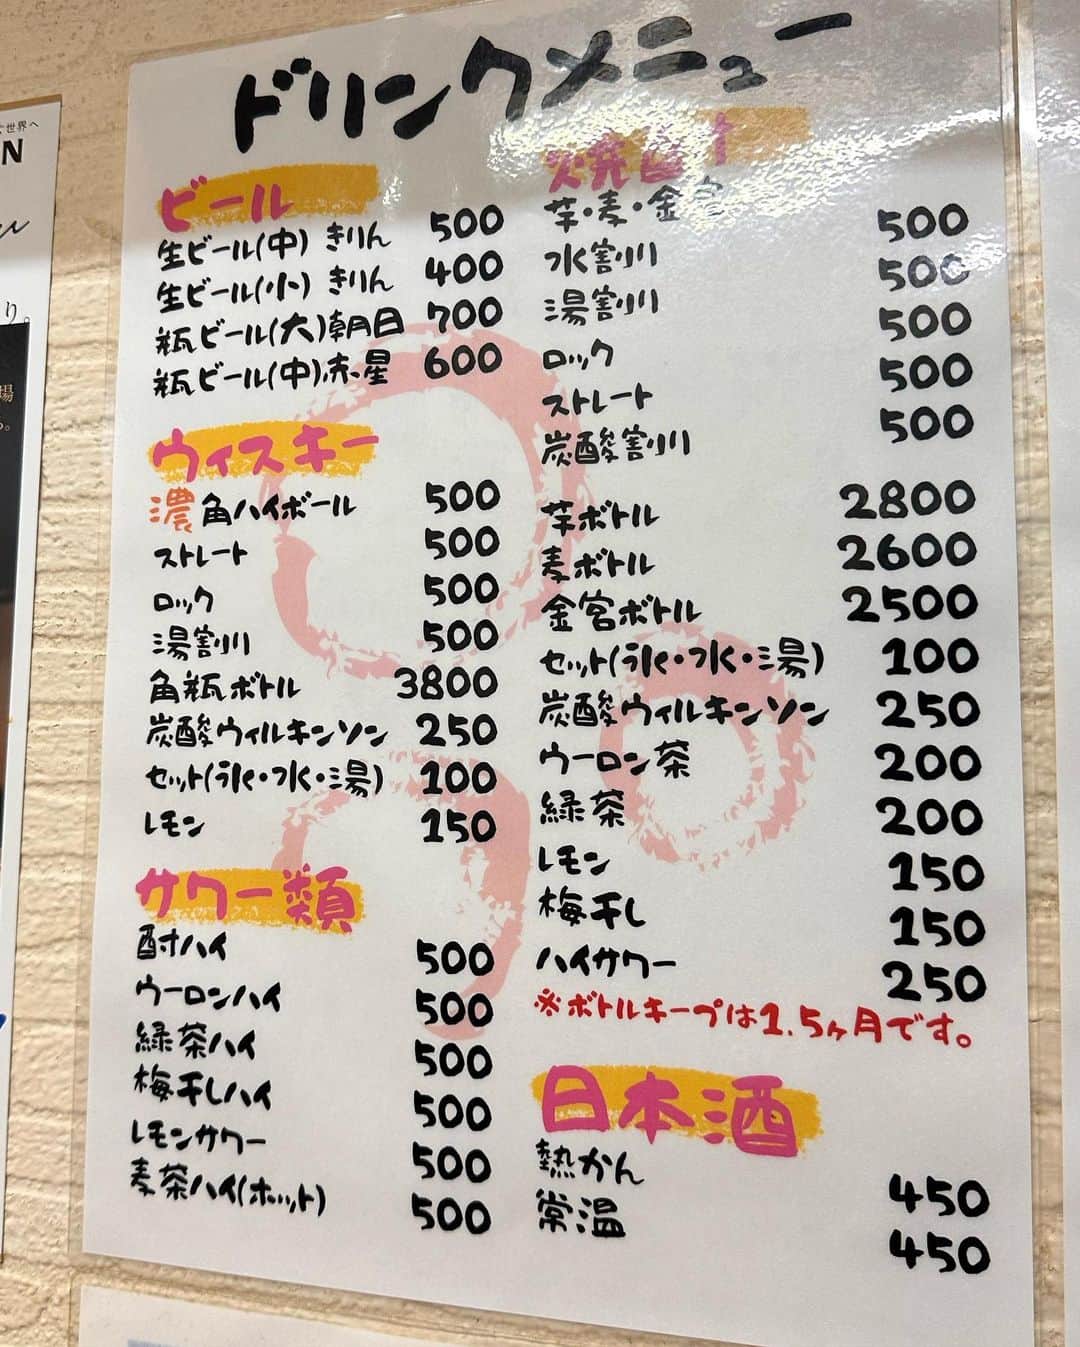 ドリンクメニュー
ビール
生ビール(中) きりん 500
生ビール(小) きりん 400
瓶ビール(大)朝日 700
瓶ビール(中)赤星 600
ウィスキー
濃 角ハイボール 500
ストレート 500
ロック 500
湯割り 500
角瓶ボトル 3800
炭酸ウィルキンソン 250
セット(氷・水・湯) 100
レモン 150
サワー類
酎ハイ 500
ウーロンハイ 500
緑茶ハイ 500
梅干しハイ 500
レモンサワー 500
麦茶ハイ(ホット) 500
焼酎
芋・麦・金宮
水割り 500
湯割り 500
ロック 500
ストレート 500
炭酸割り 500
芋ボトル 2800
麦ボトル 2600
金宮ボトル 2500
セット(氷・水・湯) 100
炭酸ウィルキンソン 250
ウーロン茶 200
緑茶 200
レモン 150
梅干し 150
ハイサワー 250
※ボトルキープは1.5ヶ月です。
日本酒
熱かん 450
常温 450
世界へ
N
り。
場